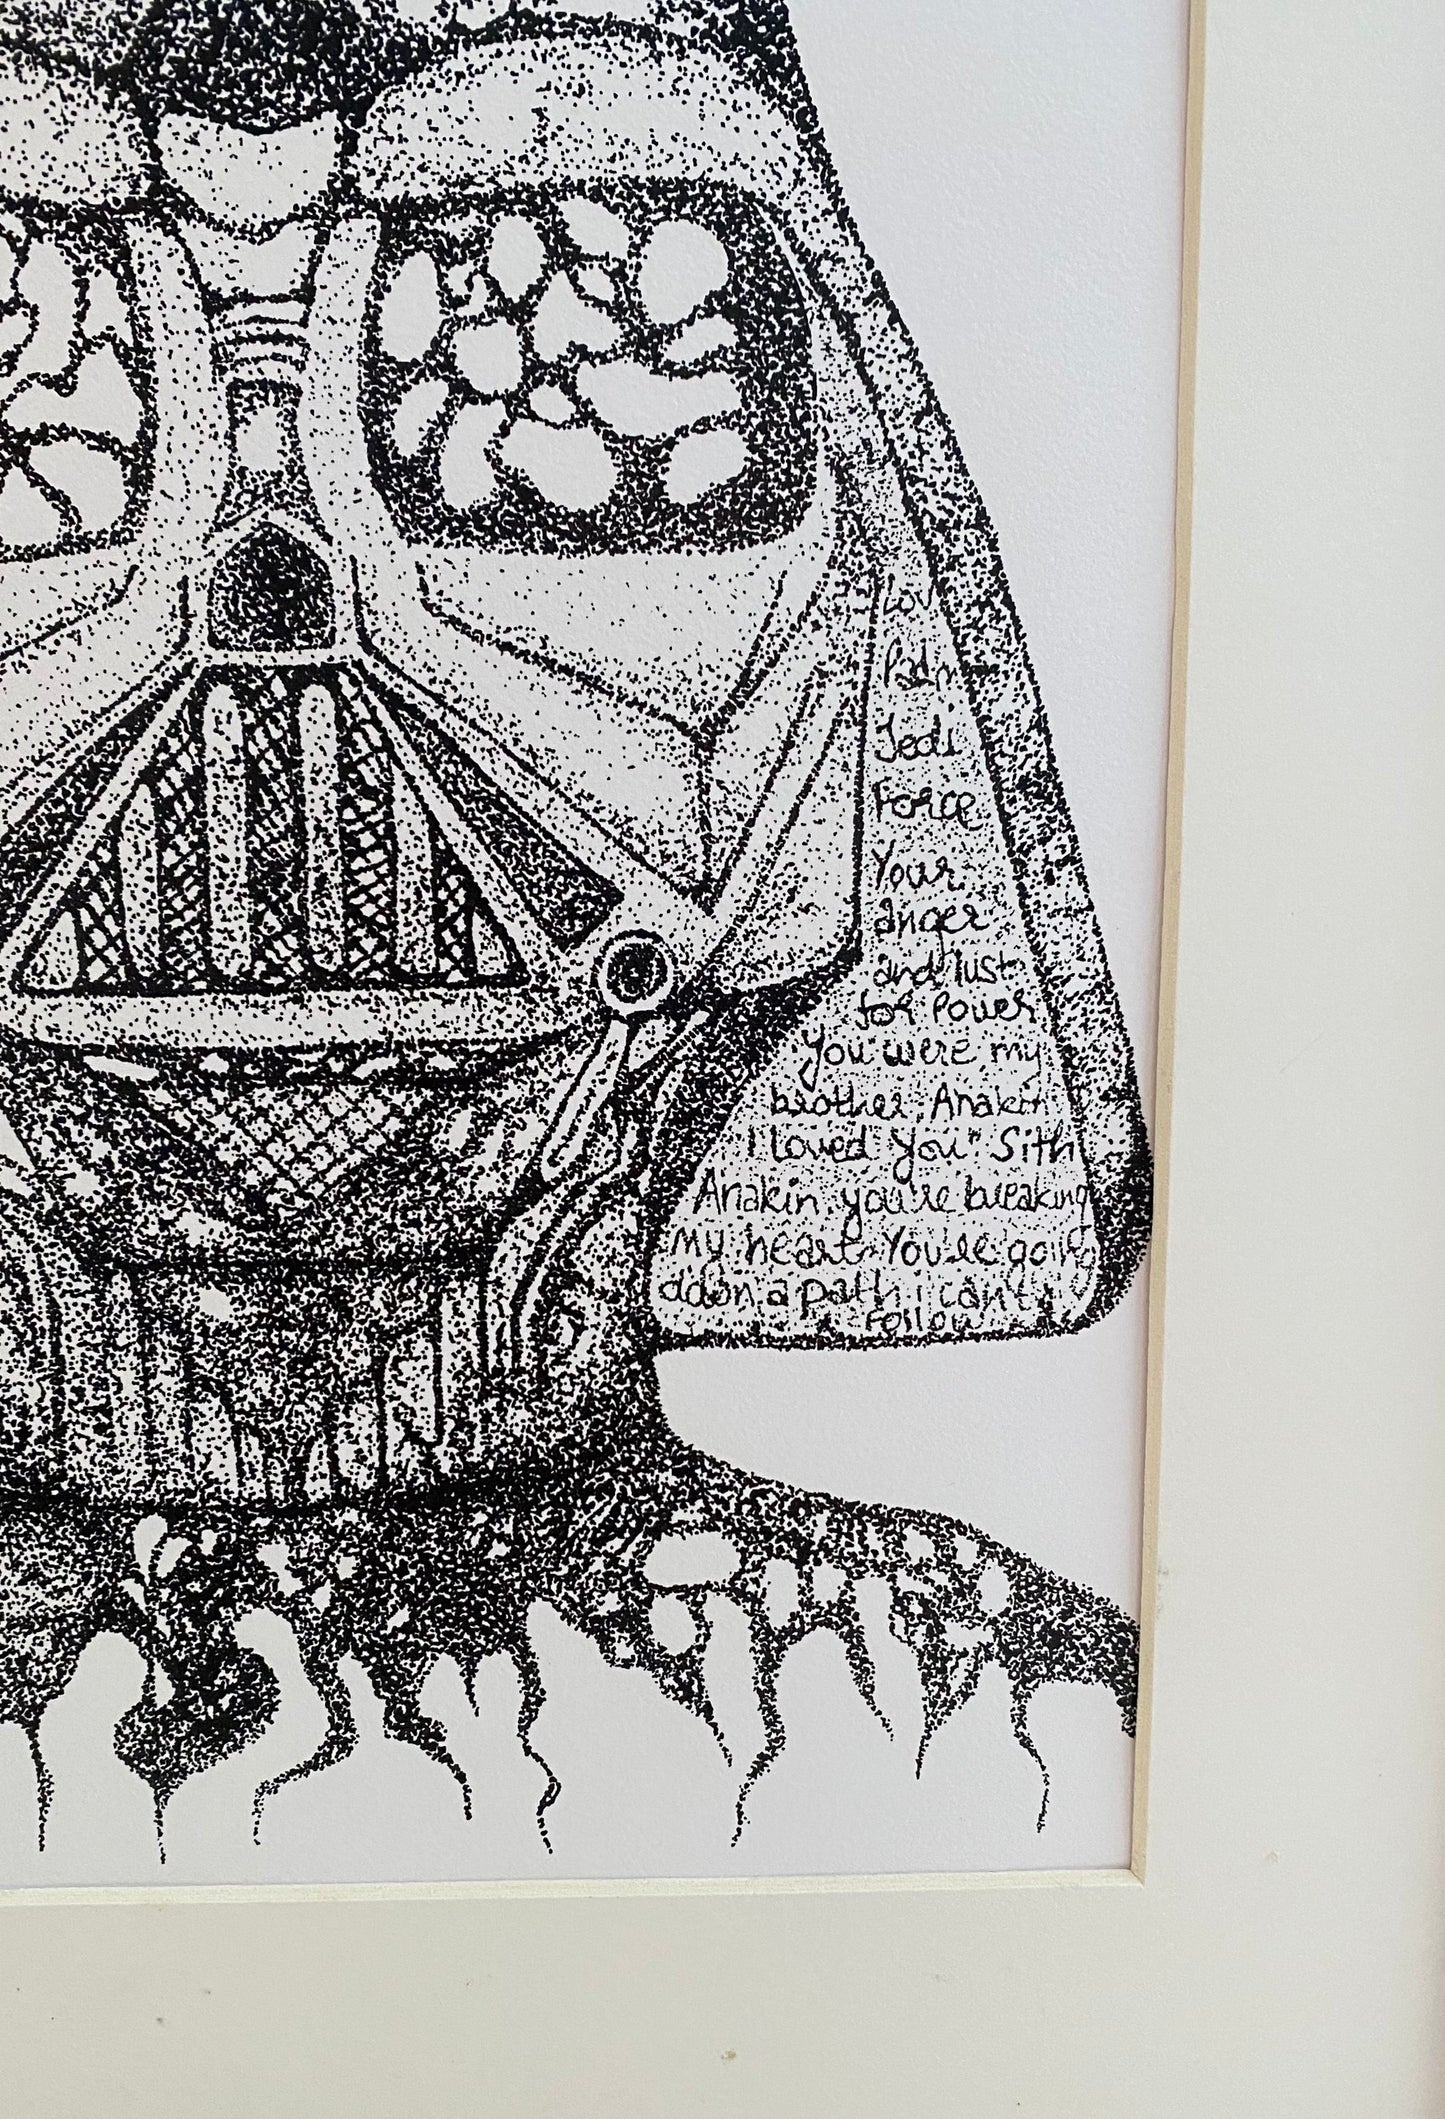 Lov
Pain
Jedi
Force
Your
anger
and lust
for Power
You were my
brother, Anakin
I loved You" Sith
Anakin you're breaking
my heart You're going
down a path i can't
Follow